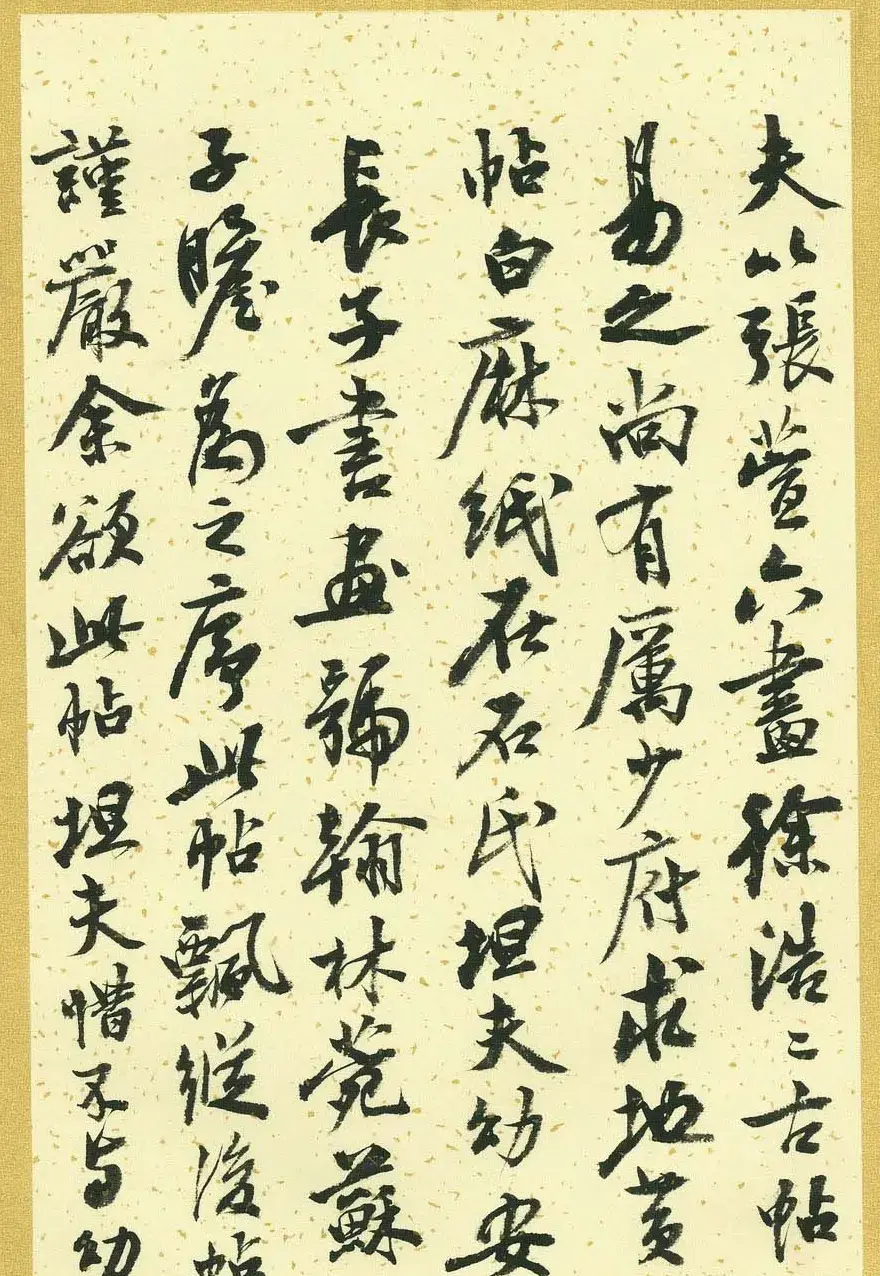 夫以張萱六畫徐浩二古帖
易之尚有厲少府求地黃
帖白麻紙在石氏坦夫幼安
長子書画號翰林菀蘇
子瞻為之序此帖飄縱後帖
謹嚴余欲此帖坦夫惜不与幼